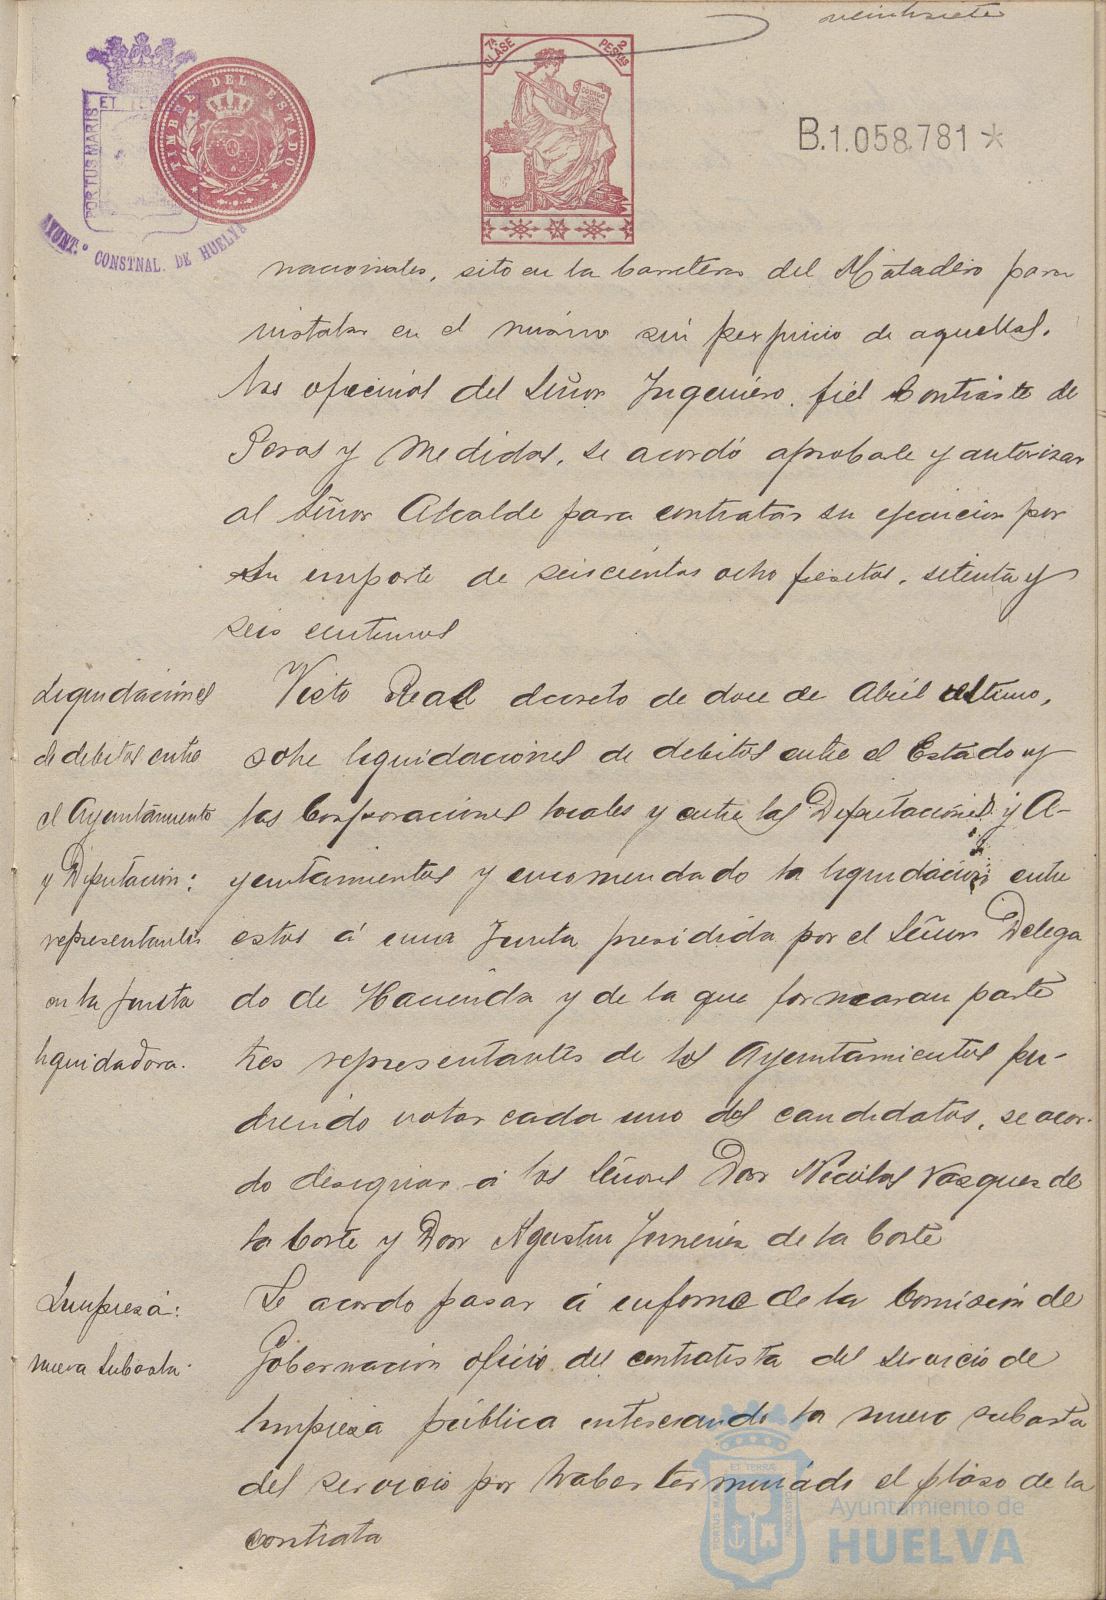 veintisiete
7ª CLASE
2 PESTAS
ET TERRÆ
PORTUS MARIS
AYUNT.º CONSTNAL. DE HUELVA
TIMBRE DEL ESTADO
B.1.058.781*
nacionales, sito en la Carretera del Matadero para
instalar en el mismo sin perjuicio de aquellas,
las oficinas del Señor Ingeniero, fiel Contraste de
Pesas y Medidas, se acordó aprobale y autorizar
al Señor Alcalde para contratar su ejecucion por
su importe de seiscientas ocho pesetas, setenta y
seis centimos
Liquidaciones
de debitos entre
el Ayuntamiento
y Diputacion:
representantes
en la Junta
liquidadora.
Visto Real decreto de doce de Abril ultimo,
sobre liquidaciones de debitos entre el Estado y
las Corporaciones locales y entre las Diputaciones y A-
yuntamientos y encomendado la liquidacion entre
estos á una Junta presidida por el Señor Delega
do de Hacienda y de la que formaran parte
tres representantes de los Ayuntamientos pu-
diendo votar cada uno dos candidatos, se acor-
do designar á los Señores Don Nicolas Vazquez de
la Corte y Don Agustin Jimenez de la Corte
Limpieza:
nueva subasta.
Se acordo pasar á informe de la Comisión de
Gobernacion oficio del contratista del servicio de
limpieza pública interesando la nueva subasta
del servicio por haber terminado el plazo de la
contrata
Ayuntamiento de
HUELVA